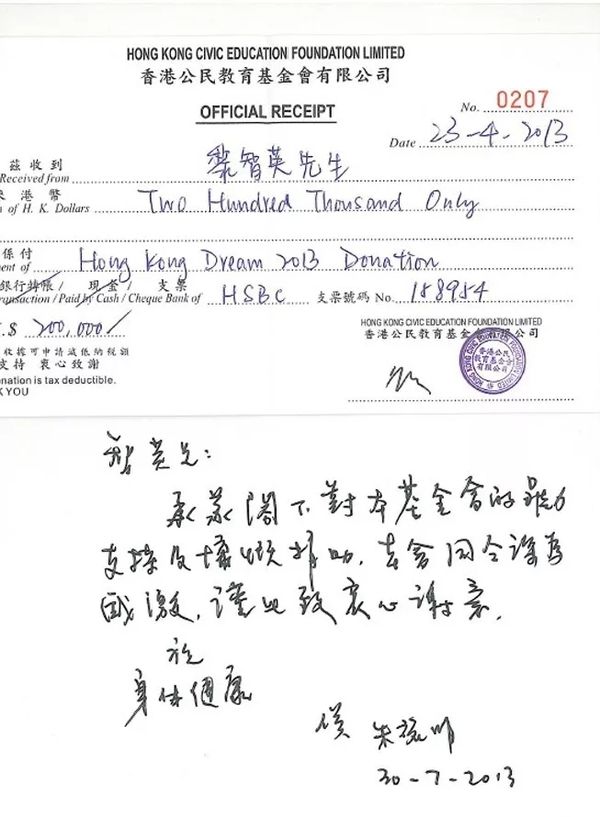 HONG KONG CIVIC EDUCATION FOUNDATION LIMITED
香港公民教育基金會有限公司
OFFICIAL RECEIPT
No. 0207
Date 23-4-2013
茲收到
Received from 黎智英先生
港幣
n of H. K. Dollars Two Hundred Thousand Only
係付
ment of Hong Kong Dream 2013 Donation
銀行轉帳 / 現金 / 支票
ransaction / Paid by Cash / Cheque Bank of HSBC 支票號碼 No. 188954
.$ 200,000/
收據可申請減低納稅額
支持 衷心致謝
onation is tax deductible.
K YOU
HONG KONG CIVIC EDUCATION FOUNDATION LIMITED
香港公民教育基金會有限公司
HONG KONG CIVIC EDUCATION FOUNDATION LIMITED
香港公民
教育基金會
有限公司
智英兄:
承蒙閣下對本基金會的鼎力
支持及慷慨捐助,本會同仝深為
感激,謹此致衷心謝意.
祝
身体健康
朱耀明
30-7-2013